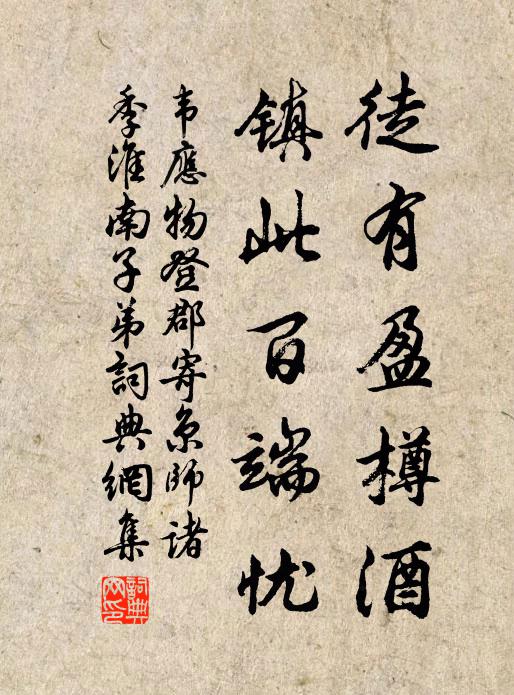 徒有盈樽酒
镇此百端忧
韦應物登郡寄京師諸
季淮南子弟詞典網集
詞典網印